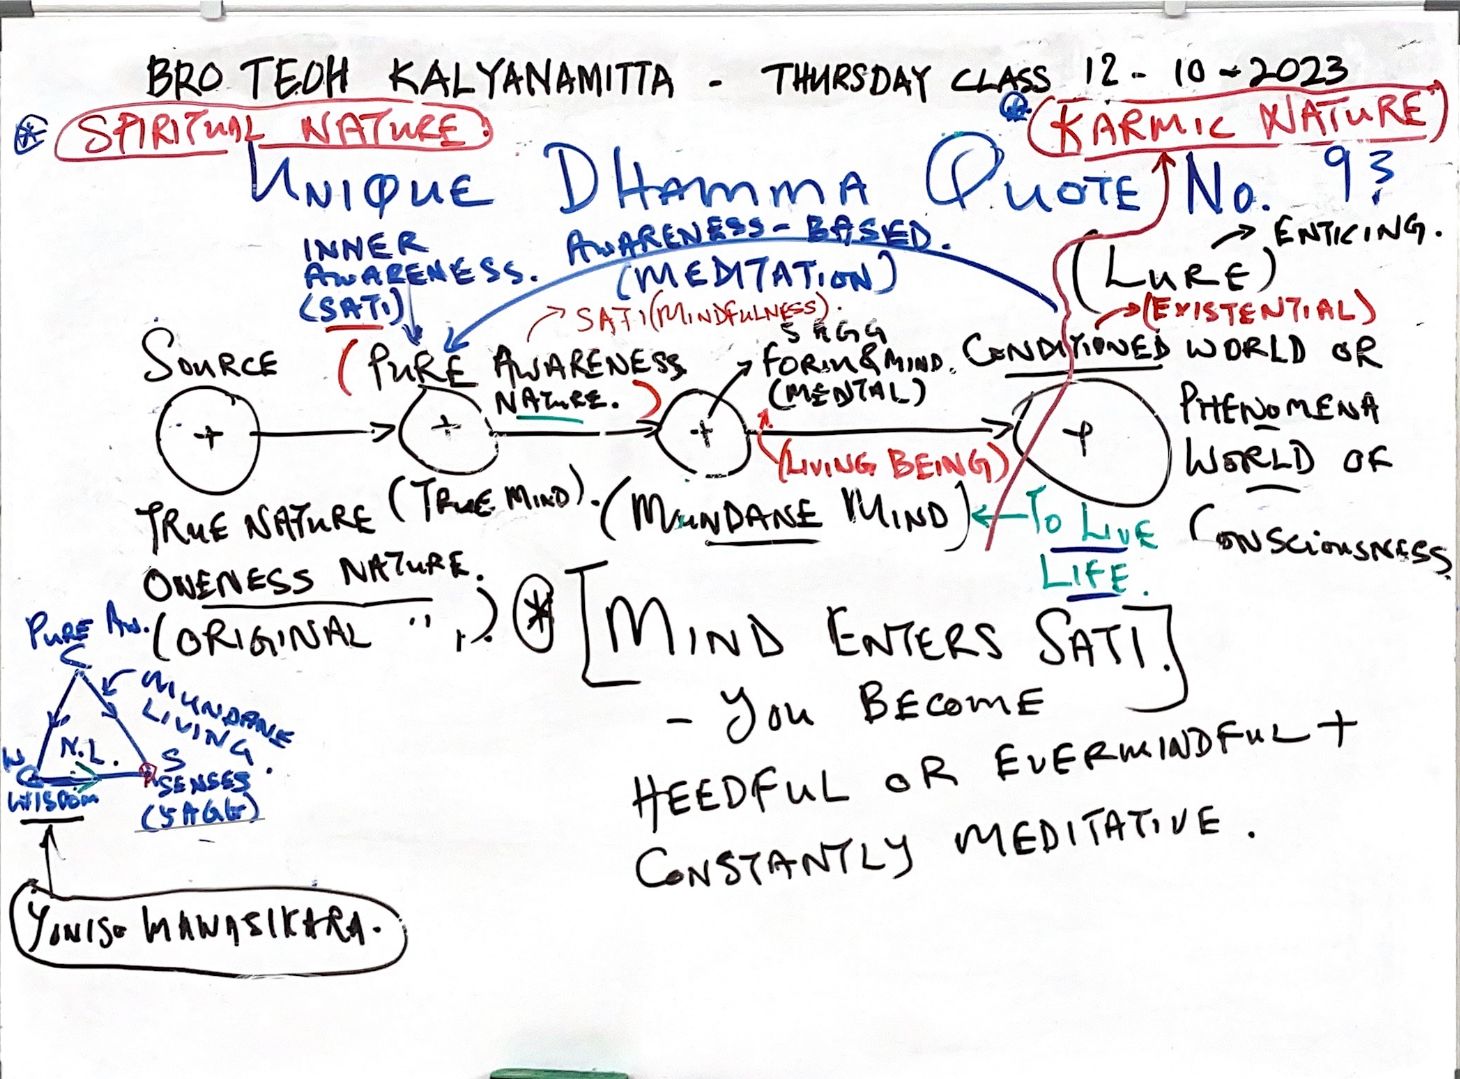 BRO TEOH KALYANAMITTA - THURSDAY CLASS 12-10-2023
* SPIRITUAL NATURE.
* KARMIC NATURE
UNIQUE DHAMMA QUOTE No. 93
INNER
AWARENESS.
(SATI)
AWARENESS-BASED.
(MEDITATION)
(LURE) → ENTICING.
→ SATI (MINDFULNESS).
→ (EXISTENTIAL)
SOURCE
(PURE AWARENESS
NATURE.)
5 AGG
FORM & MIND.
(MENTAL)
CONDITIONED WORLD OR
PHENOMENA
WORLD OF
CONSCIOUSNESS
(LIVING BEING)
TRUE NATURE
ONENESS NATURE.
(ORIGINAL " ,,).
(TRUE MIND).
(MUNDANE MIND)
← TO LIVE
LIFE.
* [MIND ENTERS SATI.]
- YOU BECOME
HEEDFUL OR EVERMINDFUL +
CONSTANTLY MEDITATIVE.
PURE AW.
MUNDANE
LIVING.
N.L.
W
WISDOM
S
SENSES
(5 AGG)
YONISO MANASIKARA.